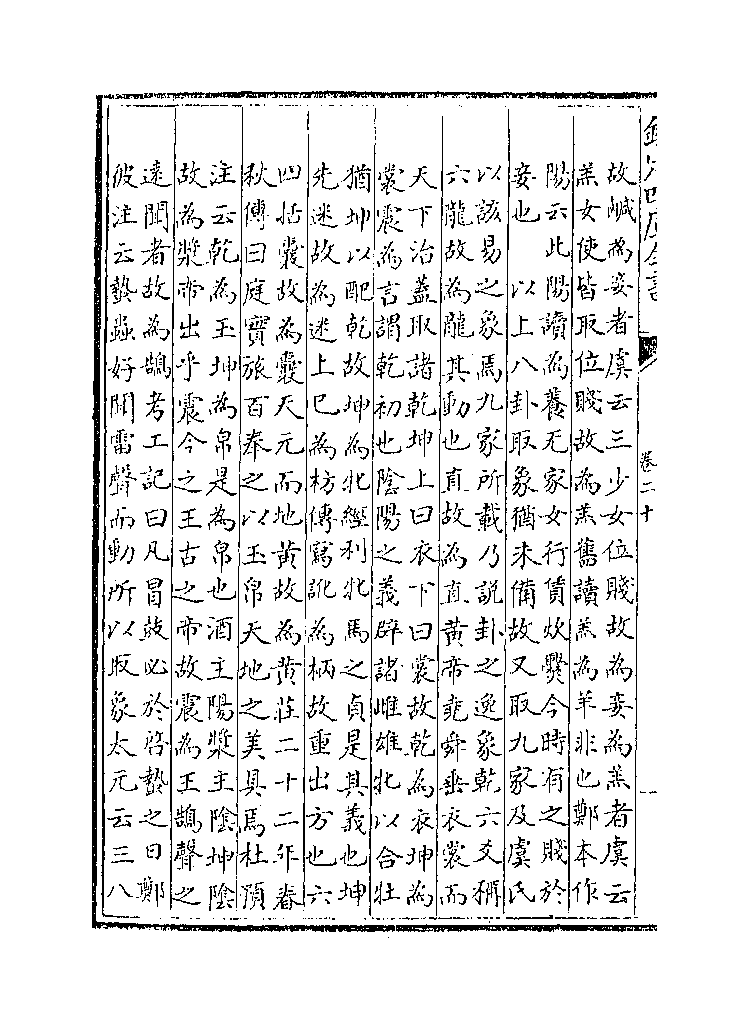 欽定四庫全書
卷二十
故鹹為妾者虞云三少女位賤故為妾為羔者虞云
羔女使皆取位賤故為羔舊讀羔為羊非也鄭本作
陽云此陽讀為養无家女行賃炊爨今時有之賤於
妾也　以上八卦取象猶未備故又取九家及虞氏
以該易之象焉九家所載乃說卦之逸象乾六爻稱
六龍故為龍其動也直故為直黃帝堯舜垂衣裳而
天下治蓋取諸乾坤上曰衣下曰裳故乾為衣坤為
裳震為言謂乾初也陰陽之義辟諸雌雄牝以合牡
猶坤以配乾故坤為牝經利牝馬之貞是其義也坤
先迷故為迷上巳為枋傳寫訛為柄故重出方也六
四括囊故為囊天元而地黃故為黄莊二十二年春
秋傳曰庭實旅百奉之以玉帛天地之美具焉杜預
注云乾為玉坤為帛是為帛也酒主陽漿主陰坤陰
故為漿帝出乎震今之王古之帝故震為王鵠聲之
遠聞者故為鵠考工記曰凡冒鼓必於啓蟄之日鄭
彼注云蟄蟲好聞雷聲而動所以取象太元云三八